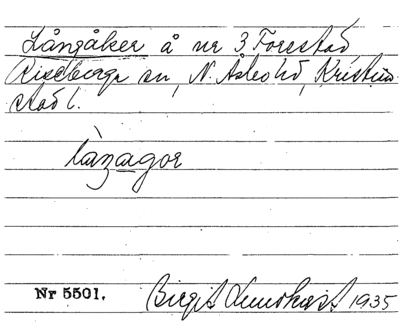 Långåker å nr 3 Forestad
Riseberga sn, N. Åsbo hd, Kristian
stad l.
làŋagor
Nr 5501. Birgit Lundkvist 1935